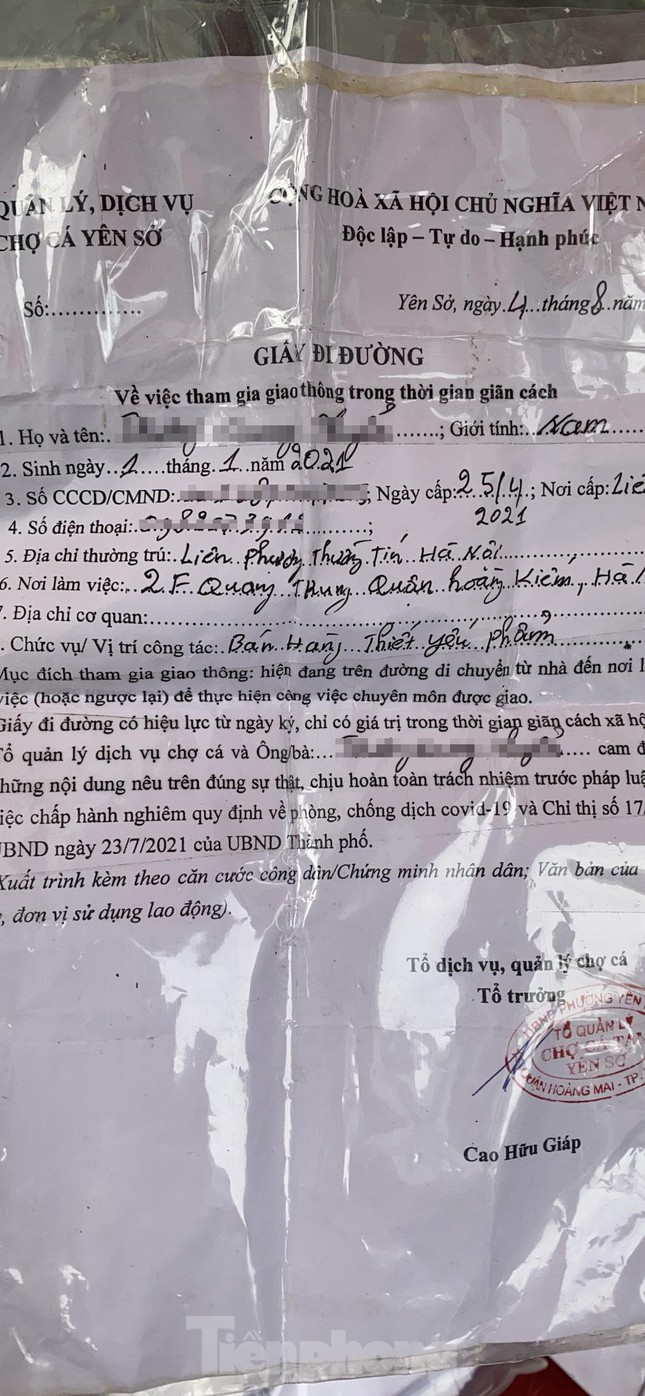 QUẢN LÝ, DỊCH VỤ
CHỢ CÁ YÊN SỞ
CỘNG HOÀ XÃ HỘI CHỦ NGHĨA VIỆT N
Độc lập – Tự do – Hạnh phúc
Số:..............
Yên Sở, ngày.4...tháng 8 năm
GIẤY ĐI ĐƯỜNG
Về việc tham gia giao thông trong thời gian giãn cách
1. Họ và tên: .......; Giới tính: Nam......
2. Sinh ngày..1....tháng.1.năm 2021
3. Số CCCD/CMND: ; Ngày cấp: 25/4.; Nơi cấp:
2021
4. Số điện thoại: ............;
5. Địa chỉ thường trú: Liên Phương Thường Tín Hà Nội.........;
6. Nơi làm việc:..2.F. Quang Trung Quận hoàn Kiếm, Hà
. Địa chỉ cơ quan:..............................
. Chức vụ/ Vị trí công tác: Bán Hàng Thiết yếu phẩm
Mục đích tham gia giao thông: hiện đang trên đường di chuyển từ nhà đến nơi l
việc (hoặc ngược lại) để thực hiện công việc chuyên môn được giao.
Giấy đi đường có hiệu lực từ ngày ký, chỉ có giá trị trong thời gian giãn cách xã hộ
Tổ quản lý dịch vụ chợ cá và Ông/bà:... .... cam đ
những nội dung nêu trên đúng sự thật, chịu hoàn toàn trách nhiệm trước pháp luậ
iệc chấp hành nghiêm quy định về phòng, chống dịch covid-19 và Chỉ thị số 17/
UBND ngày 23/7/2021 của UBND Thành phố.
Xuất trình kèm theo căn cước công dân/Chứng minh nhân dân; Văn bản của
, đơn vị sử dụng lao động).
Tổ dịch vụ, quản lý chợ cá
Tổ trưởng
UBND PHƯỜNG YÊN
TỔ QUẢN LÝ
CHỢ CÁ
YÊN SỞ
QUẬN HOÀNG MAI - TP.
Cao Hữu Giáp
Tiền phong